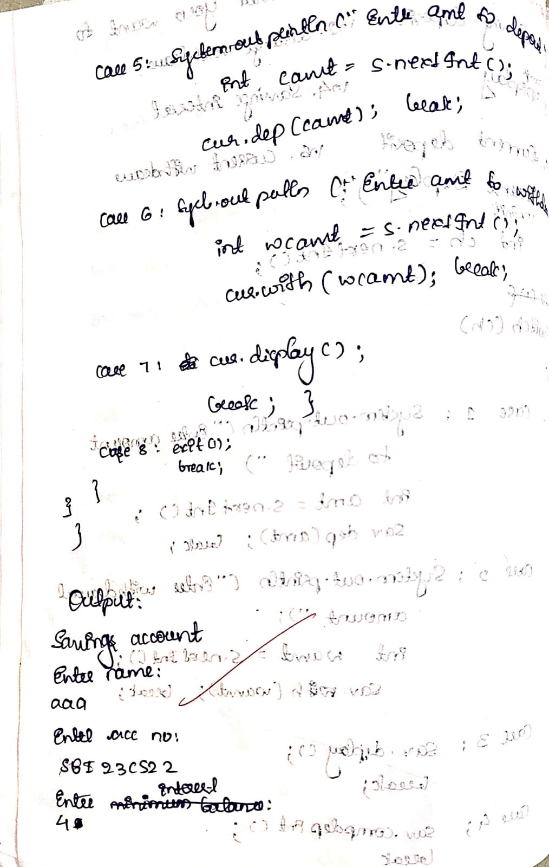 case 5: System.out.println (" Enter amt to depos
int camt = s.nextInt();
cur.dep(camt); break;
case 6: Syst.out.println (" Enter amt to withd
int wcamt = s.nextInt();
cur.with(wcamt); break;
case 7: cur.display();
break; }
case 8: exit(0);
break;
} }
}
Output:
Savings account
Enter name:
aaa
Enter acc no:
SBI23CS22
interest
Enter minimum balance:
4